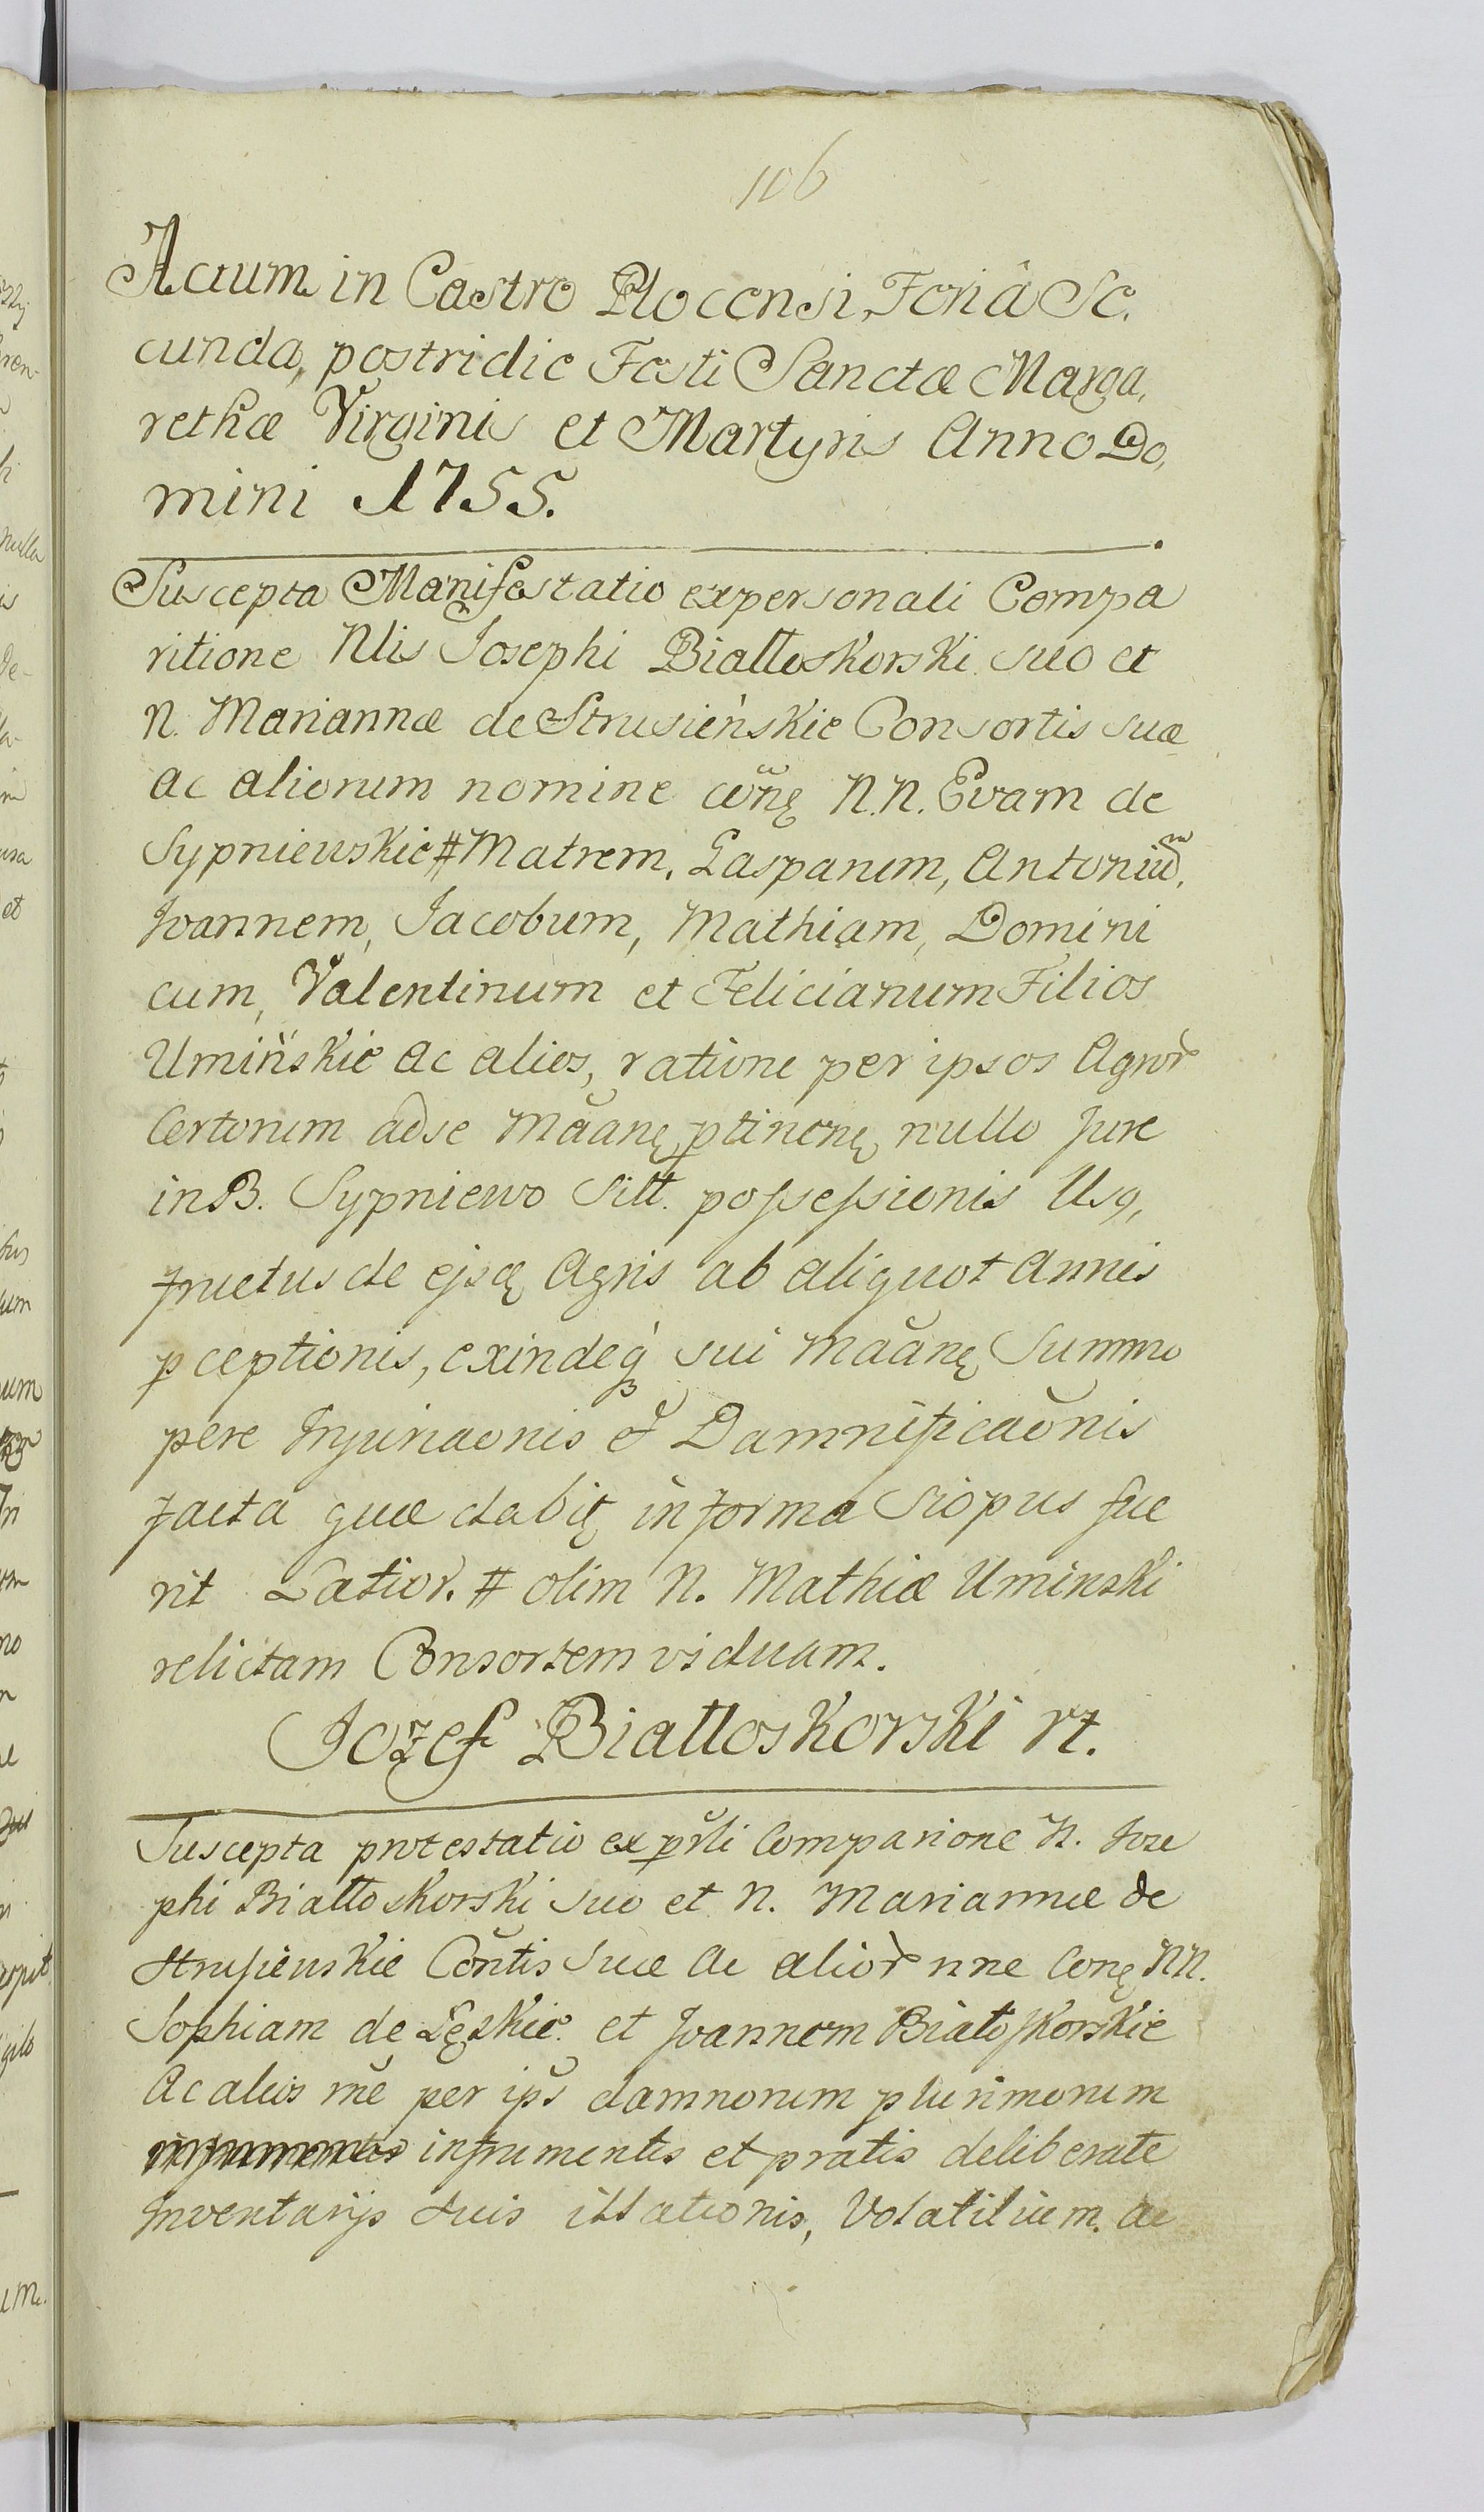 106
Actum in Castro Plocensi, Feriâ Se,
cunda, postridie Festi Sanctæ Marga,
rethæ Virginis et Martyris Anno Do,
mini 1755.
Suscepta Manifestatio expersonali Compa
ritione Nlis Josephi Bialloskorski suo et
N. Mariannæ de Strusieńskie Consortis suæ
ac aliorum nomine cõnę N.N. Evam de
Sypniewskie # Matrem, Gasparum, Antoniũm,
Joannem, Jacobum, Mathiam, Domini
cum, Valentinum et Felicianum Filios
Umińskie ac alios, ratione per ipsos Agror
Certorum adse Mãanę ptinenę nullo Jure
in B. Sypniewo Sitt. possessionis Usq,
fructus de ejsdę Agris ab aliquot Annis
pceptionis, exindeq́ sui Mãanę Summo
pere Injuriaonis et Damnificaõnis
facta quæ dabiţ in forma Siopus fue
rit Latior. # olim N. Mathiæ Uminski
relictam Consortem viduam.
Jozef Bialloskorski rt.
Suscepta protestatio ex pr̃li Comparione N. Jose
phi Bialloskorski suo et N. Mariannæ de
Strusienskie Cõntis suæ ac aliõr nne Conę NN.
Sophiam de Lęskie et Joannem Białoskorskie
Ac alios rñe per ip̃s damnorum plurimorum
infrumentis et pratis deliberate
Inventarijs suis illationis, Volatilium ac